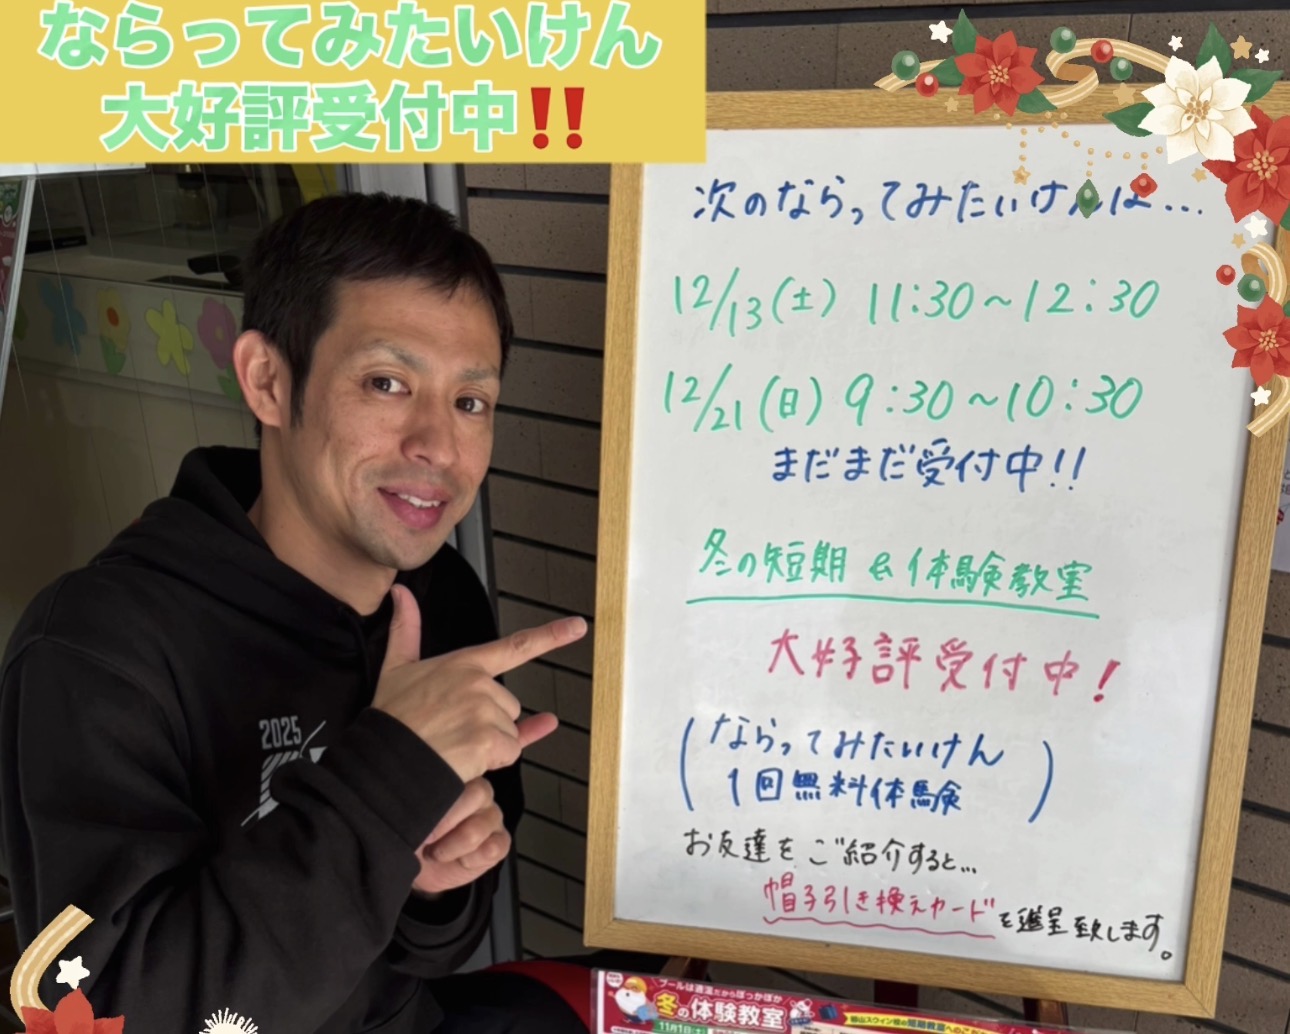 ならってみたいけん
大好評受付中‼️
次のならってみたいけんは...
12/13(土) 11:30~12:30
12/21(日) 9:30~10:30
まだまだ受付中!!
冬の短期&体験教室
大好評受付中!
(ならってみたいけん
1回無料体験)
お友達をご紹介すると...
帽子引き換えカードを進呈致します。
2025
プールは適温だからぽっかぽか
冬の体験教室
11月1日(土)